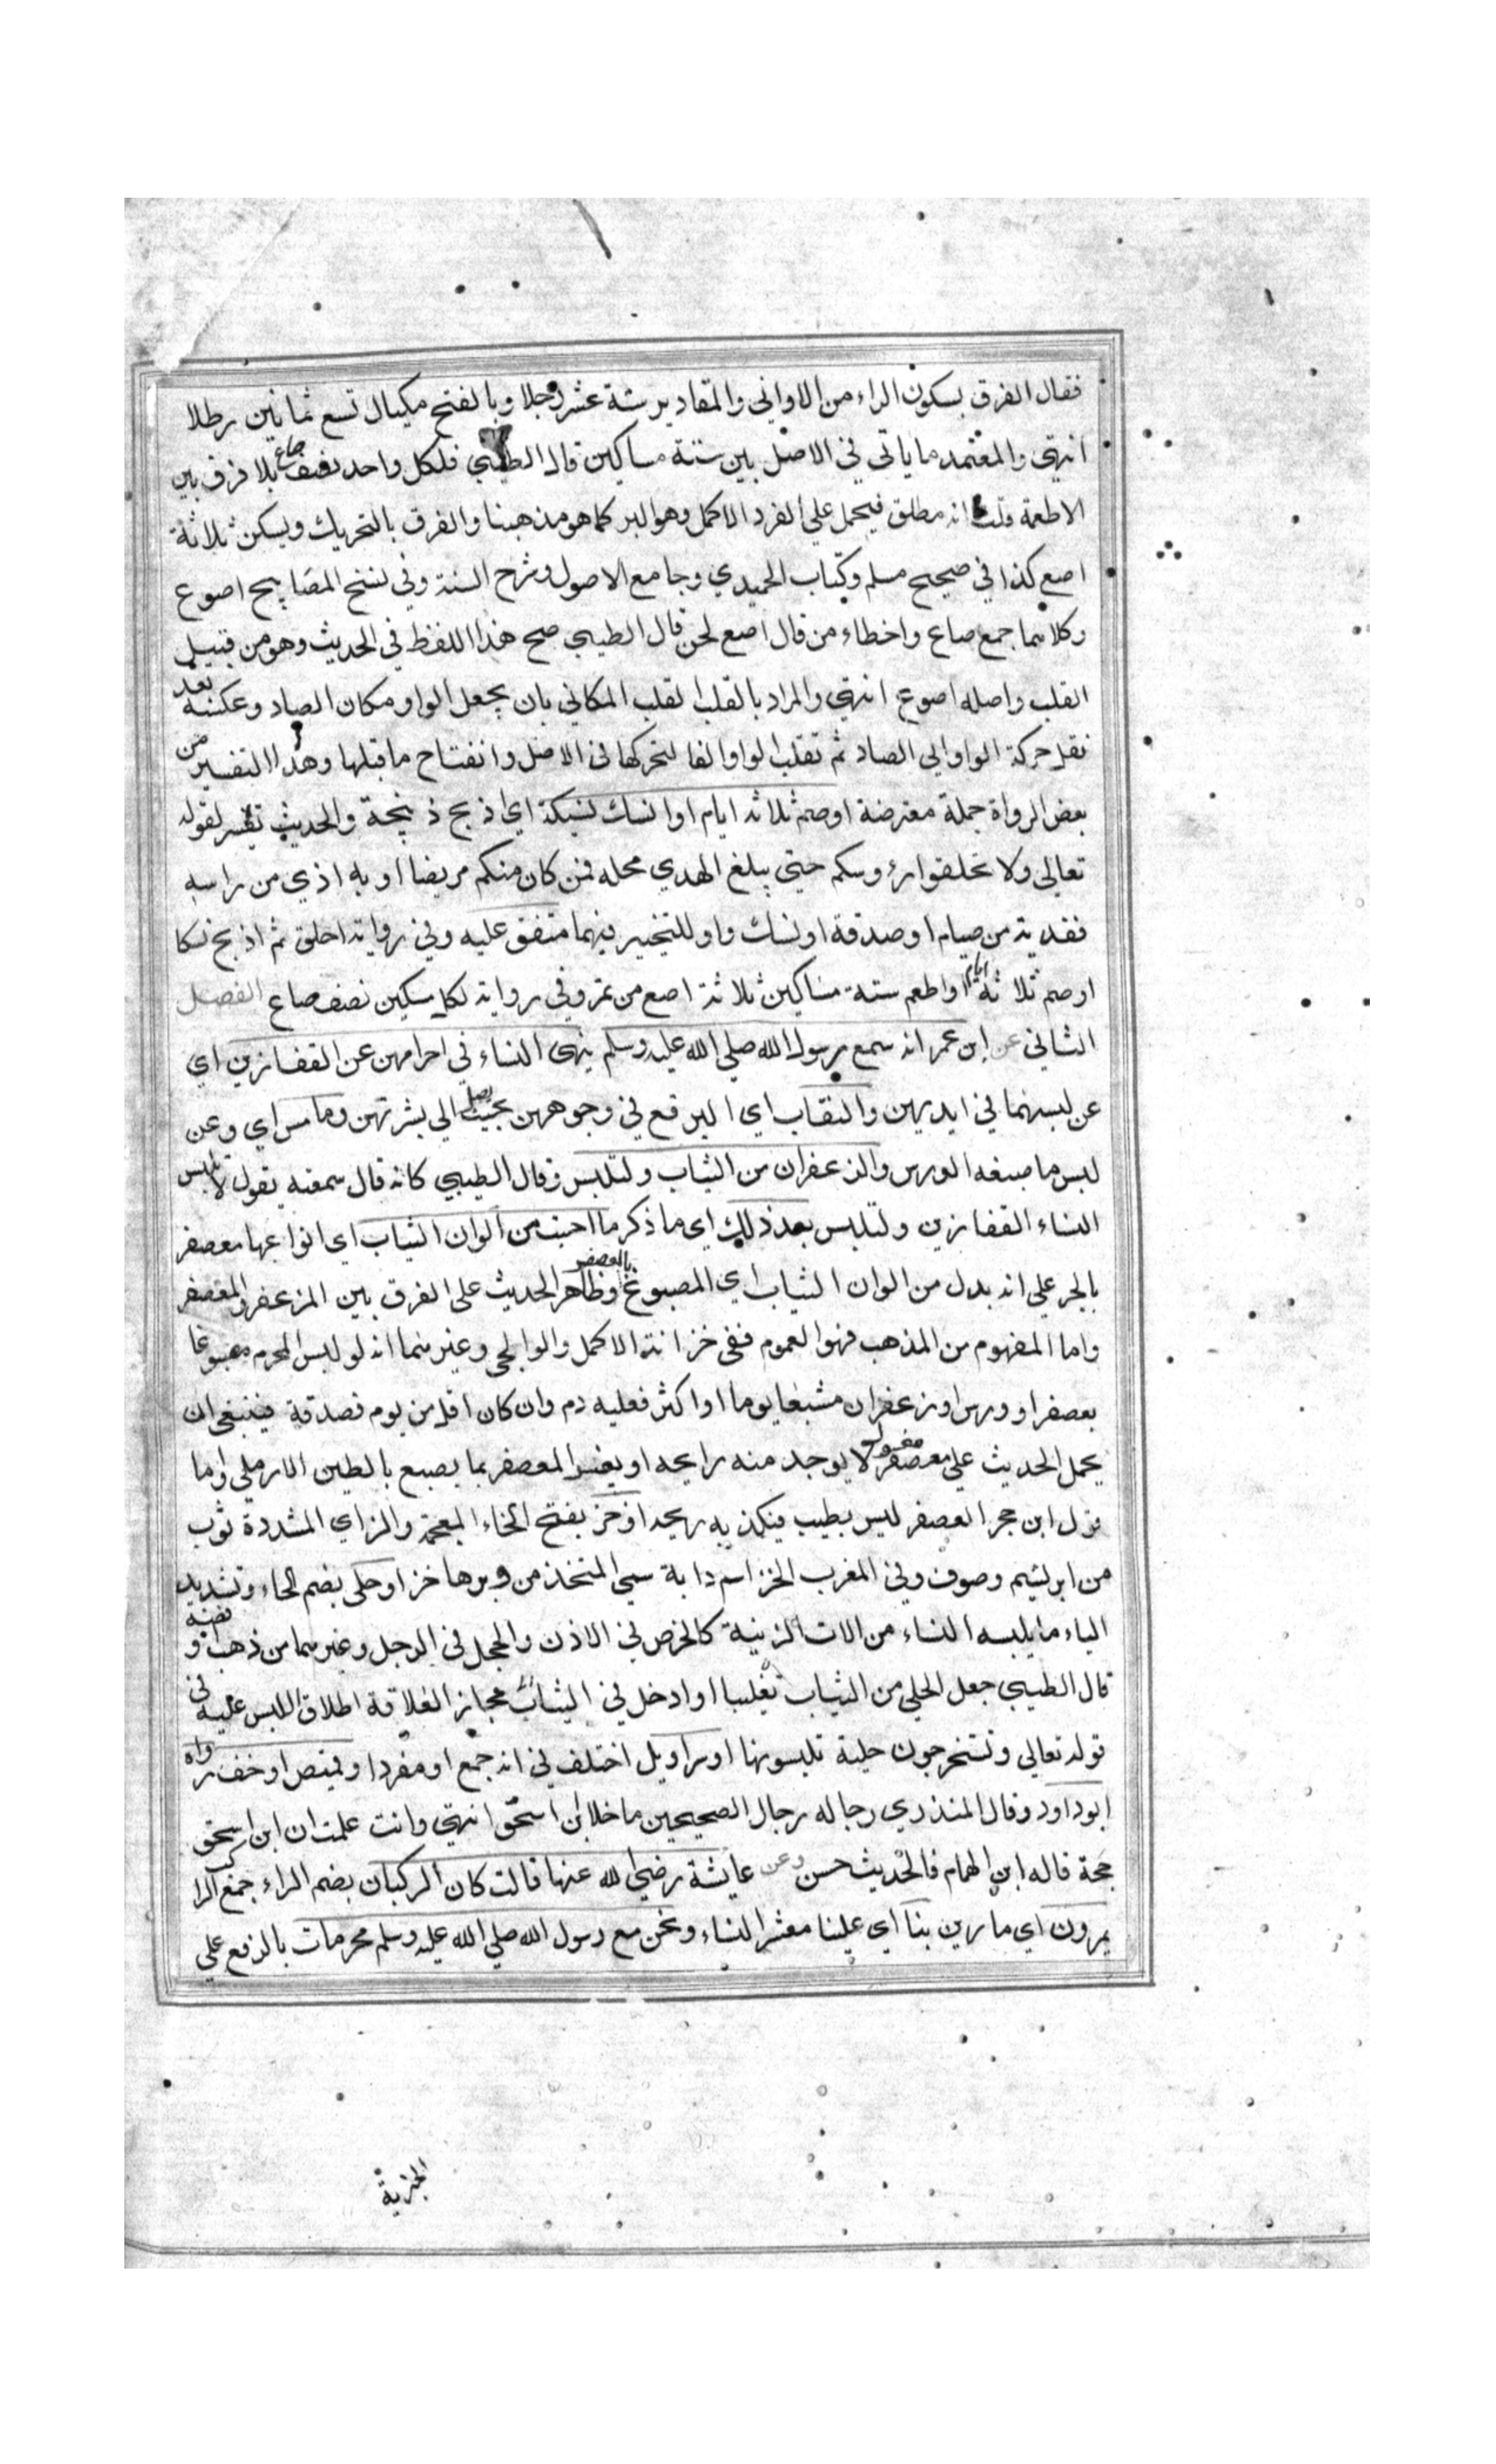 فقال الفرق بسكون الراء من الاواني والمقادير ستة عشر رجلا وبالفتح مكيال تسع ثمانين رطلا
انتهي والمعتمد ما ياتي في الاصل بين ستة مساكين قال الطيبي فلكل واحد نصف صاع بلا فرق بين
الاطعمة قلت انه مطلق فيحمل علي الفرد الاكمل وهو البر كما هو مذهبنا والفرق بالتحريك ويسكن ثلاثة
اصع كذا في صحيح مسلم وكتاب الحميدي وجامع الاصول وشرح السنة وفي نسخ المصابيح اصوع
وكلاهما جمع صاع واخطاء من قال اصع لحن قال الطيبي صح هذا اللفظ في الحديث وهو من قبيل
القلب واصله اصوع انتهي والمراد بالقلب القلب المكاني بان يجعل الواو مكان الصاد وعكسه بعد
نقل حركة الواو الي الصاد ثم تقلب الواو الفا لتحركها في الاصل وانفتاح ما قبلها وهذا التفسير من
بعض الرواة جملة معترضة او صم ثلاثه ايام او انسك نسيكة اي اذبح ذبيحة والحديث تفسير لقوله
تعالي ولا تحلقوا رؤوسكم حتي يبلغ الهدي محله فمن كان منكم مريضا او به اذي من راسه
ففدية من صيام او صدقة او نسك واو للتخيير فيهما متفق عليه وفي رواية احلق ثم اذبح نسكا
او صم ثلاثة ايام او اطعم ستة مساكين ثلاثة اصع من تمر وفي رواية لكل مسكين نصف صاع الفصل
الثاني عن ابن عمر انه سمع رسول الله صلي الله عليه وسلم ينهى النساء في احرامهن عن القفازين اي
عن لبسهما في ايديهن والنقاب اي البرقع في وجوههن بحيث يصل الي بشرتهن وما مس اي وعن
لبس ما صبغه الورس والزعفران من الثياب ولتلبس وقال الطيبي كانه قال سمعته يقول لا تلبس
النساء القفازين ولتلبس بعد ذلك اي ما ذكر ما احبت من الوان الثياب اي انواعها معصفر
بالجر علي انه بدل من الوان الثياب اي المصبوغ بالعصفر وظاهر الحديث على الفرق بين المزعفر والمعصفر
واما المفهوم من المذهب فهو العموم ففي خزانة الاكمل والوالجي وغيرهما انه لو لبس المحرم مصبوغا
بعصفر او ورس او زعفران مشبعا يوما او اكثر فعليه دم وان كان اقل من يوم فصدقة فينبغي ان
يحمل الحديث علي معصفر مغسول لا يوجد منه رايحه او يفسر المعصفر بما يصبغ بالطين الارملي واما
قول ابن حجر العصفر ليس بطيب فيكذبه ريحه او خز بفتح الخاء المعجمة والزاي المشددة ثوب
من ابريشم وصوف وفي المغرب الخز اسم دابة سمي المتخذ من وبرها خزا او حلى بضم الحاء وتشديد
الياء ما يلبسه النساء من الات الزينة كالخرص في الاذن والحجل في الرجل وغيرهما من ذهب وفضه
قال الطيبي جعل الحلي من الثياب تغليبا او ادخل في الثياب مجازا لعلاقة اطلاق اللبس عليه في
قوله تعالي وتستخرجون حلية تلبسونها او سراويل اختلف في انه جمع او مفرد او قميص او خف رواه
ابو داود وقال المنذري رجاله رجال الصحيحين ما خلا ابن اسحق انتهي وانت علمت ان ابن اسحق
حجة قاله ابن الهمام فالحديث حسن وعن عايشة رضي الله عنها قالت كان الركبان بضم الراء جمع الراكب
يمرون اي مارين بنا اي علينا معشر النساء ونحن مع رسول الله صلي الله عليه وسلم محرمات بالرفع علي